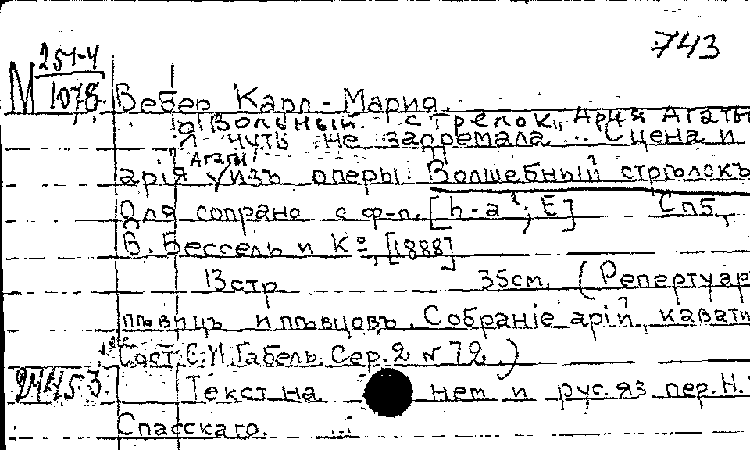 743
М 254-4
1078
Вебер Карл-Мария.
"Вольный стрелок", Ария Агаты
Я чуть не задремала... Сцена и
Агаты
арія изъ оперы: Волшебный стрѣлокъ
Для сопрано с ф-п. [h-a²; E] Спб.,
В. Бессель и Ко, [1888]
13 стр. 35 см. (Репертуар
пѣвицъ и пѣвцовъ. Собраніе арій, кавати
Сост. С. И. Габель. Сер. 2 № 72.)
Текст на нем. и рус. яз. пер. Н.
Спасскаго.